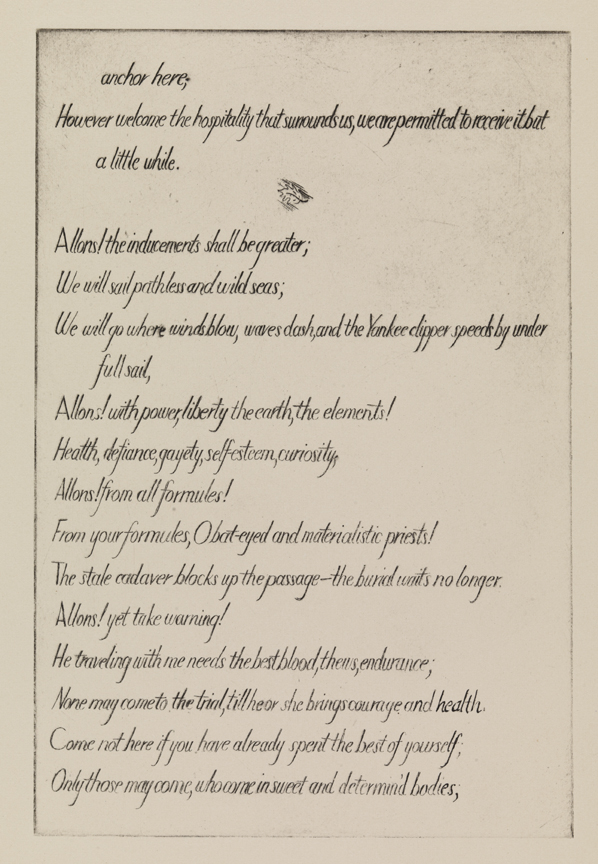 anchor here;
However welcome the hospitality that surrounds us, we are permitted to receive it but
a little while.
Allons! the inducements shall be greater;
We will sail pathless and wild seas;
We will go where winds blow, waves dash, and the Yankee clipper speeds by under
full sail,
Allons! with power, liberty the earth, the elements!
Health, defiance, gayety, self-esteem, curiosity;
Allons! from all formules!
From your formules, O bat-eyed and materialistic priests!
The stale cadaver blocks up the passage—the burial waits no longer.
Allons! yet take warning!
He traveling with me needs the best blood, thews, endurance;
None may come to the trial, till he or she brings courage and health.
Come not here if you have already spent the best of yourself;
Only those may come, who come in sweet and determin'd bodies;